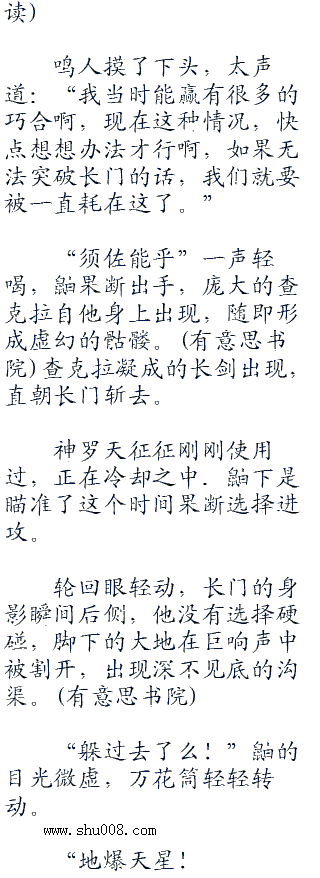 读)
鸣人摸了下头，太声
道：“我当时能赢有很多的
巧合啊，现在这种情况，快
点想想办法才行啊，如果无
法突破长门的话，我们就要
被一直耗在这了。”
“须佐能乎”一声轻
喝，鼬果断出手，庞大的查
克拉自他身上出现，随即形
成虚幻的骷髅。(有意思书
院)查克拉凝成的长剑出现，
直朝长门斩去。
神罗天征征刚刚使用
过，正在冷却之中．鼬下是
瞄准了这个时间果断选择进
攻。
轮回眼轻动，长门的身
影瞬间后侧，他没有选择硬
碰，脚下的大地在巨响声中
被割开，出现深不见底的沟
渠。(有意思书院)
“躲过去了么！”鼬的
目光微虚，万花筒轻轻转
动。
www.shu008.com
“地爆天星！